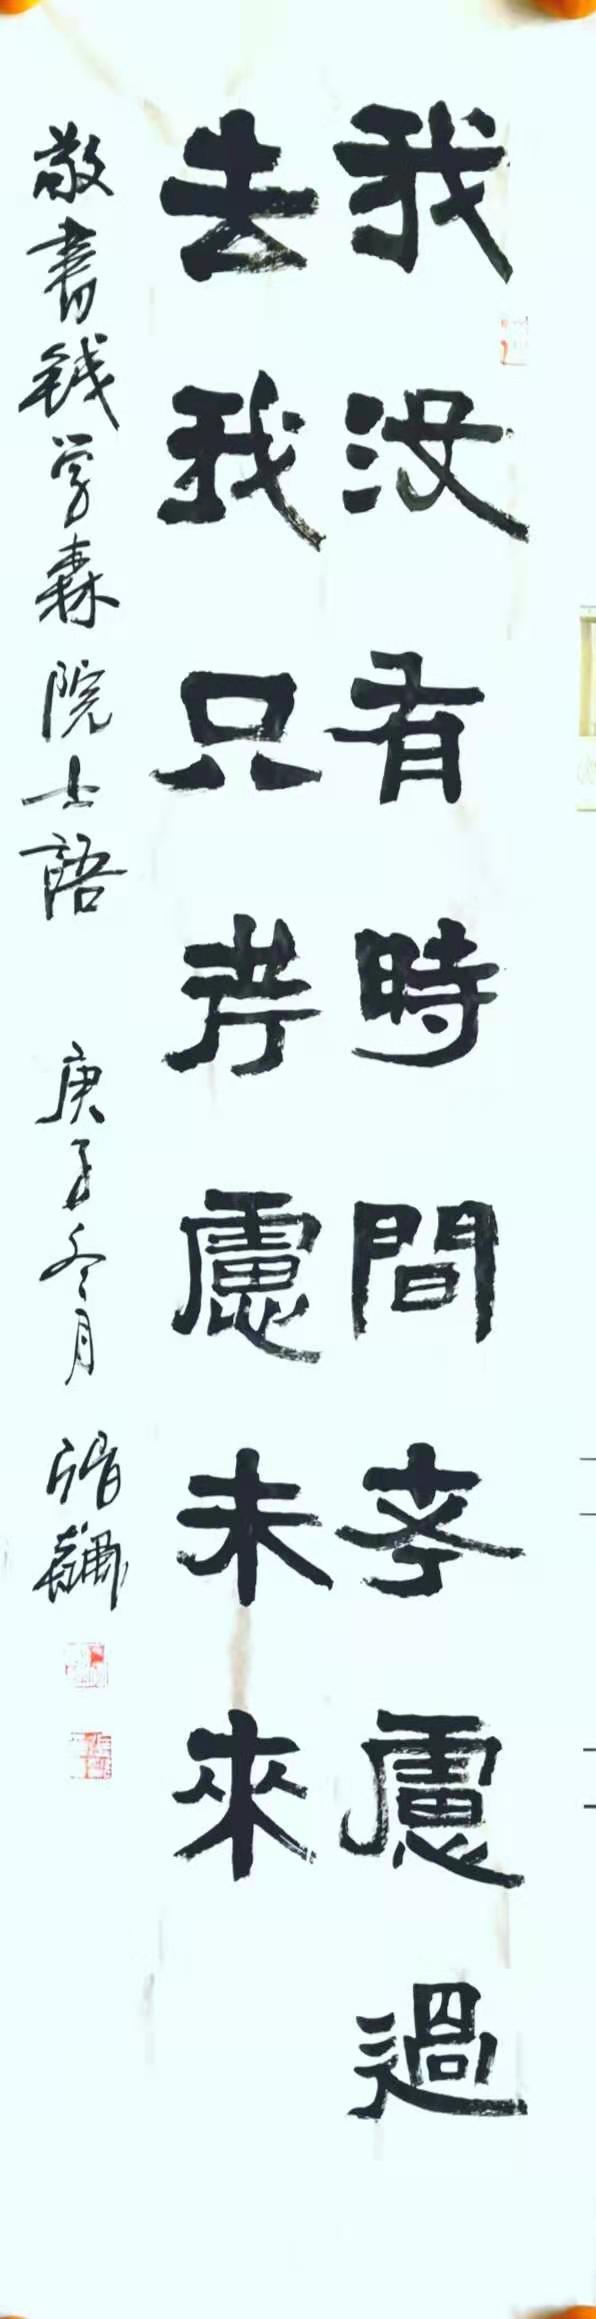 我没有時間考慮過
去我只考慮未來
敬書钱学森院士語 庚子冬月